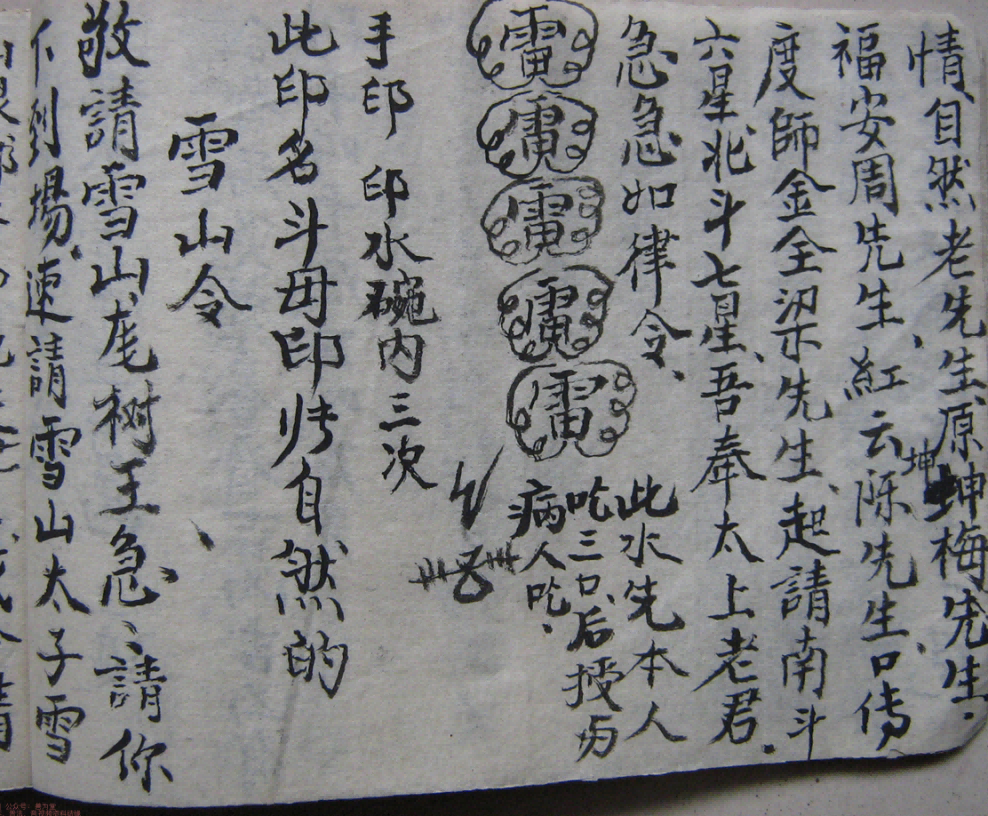 情、自然老先生、原坤梅先生.
坤
福安周先生、紅云陈先生、口传
度師金全梁先生、起請南斗
六星北斗七星、吾奉太上老君.
急急如律令、
此水先本人
吃三口、后授与
病人吃.
手印 印水碗内三次
此印名斗母印归自然的
雪山令
敬請雪山龙树王急急請你
下到場、速請雪山太子雪